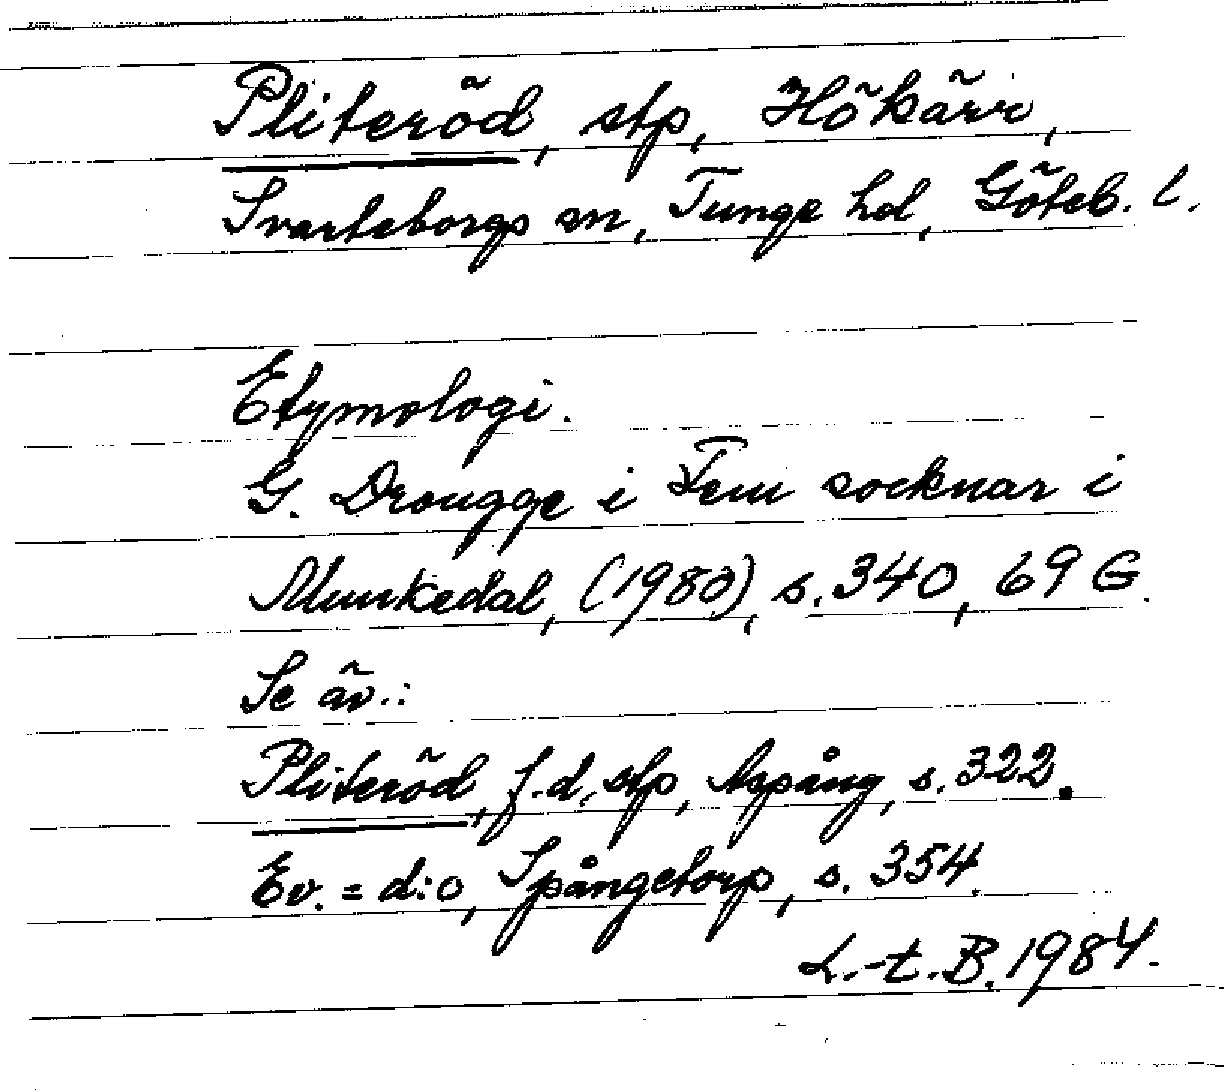 Pliteröd, stp, Hökärr,
Svarteborgs sn, Tunge hd, Göteb. l.
Etymologi.
G. Drougge i Fem socknar i
Munkedal, (1980), s. 340, 69 G.
Se äv.:
Pliteröd, f.d. stp, Aspång, s. 322.
Ev. = d:o, Spångetorp, s. 354.
L.-t. B. 1984.